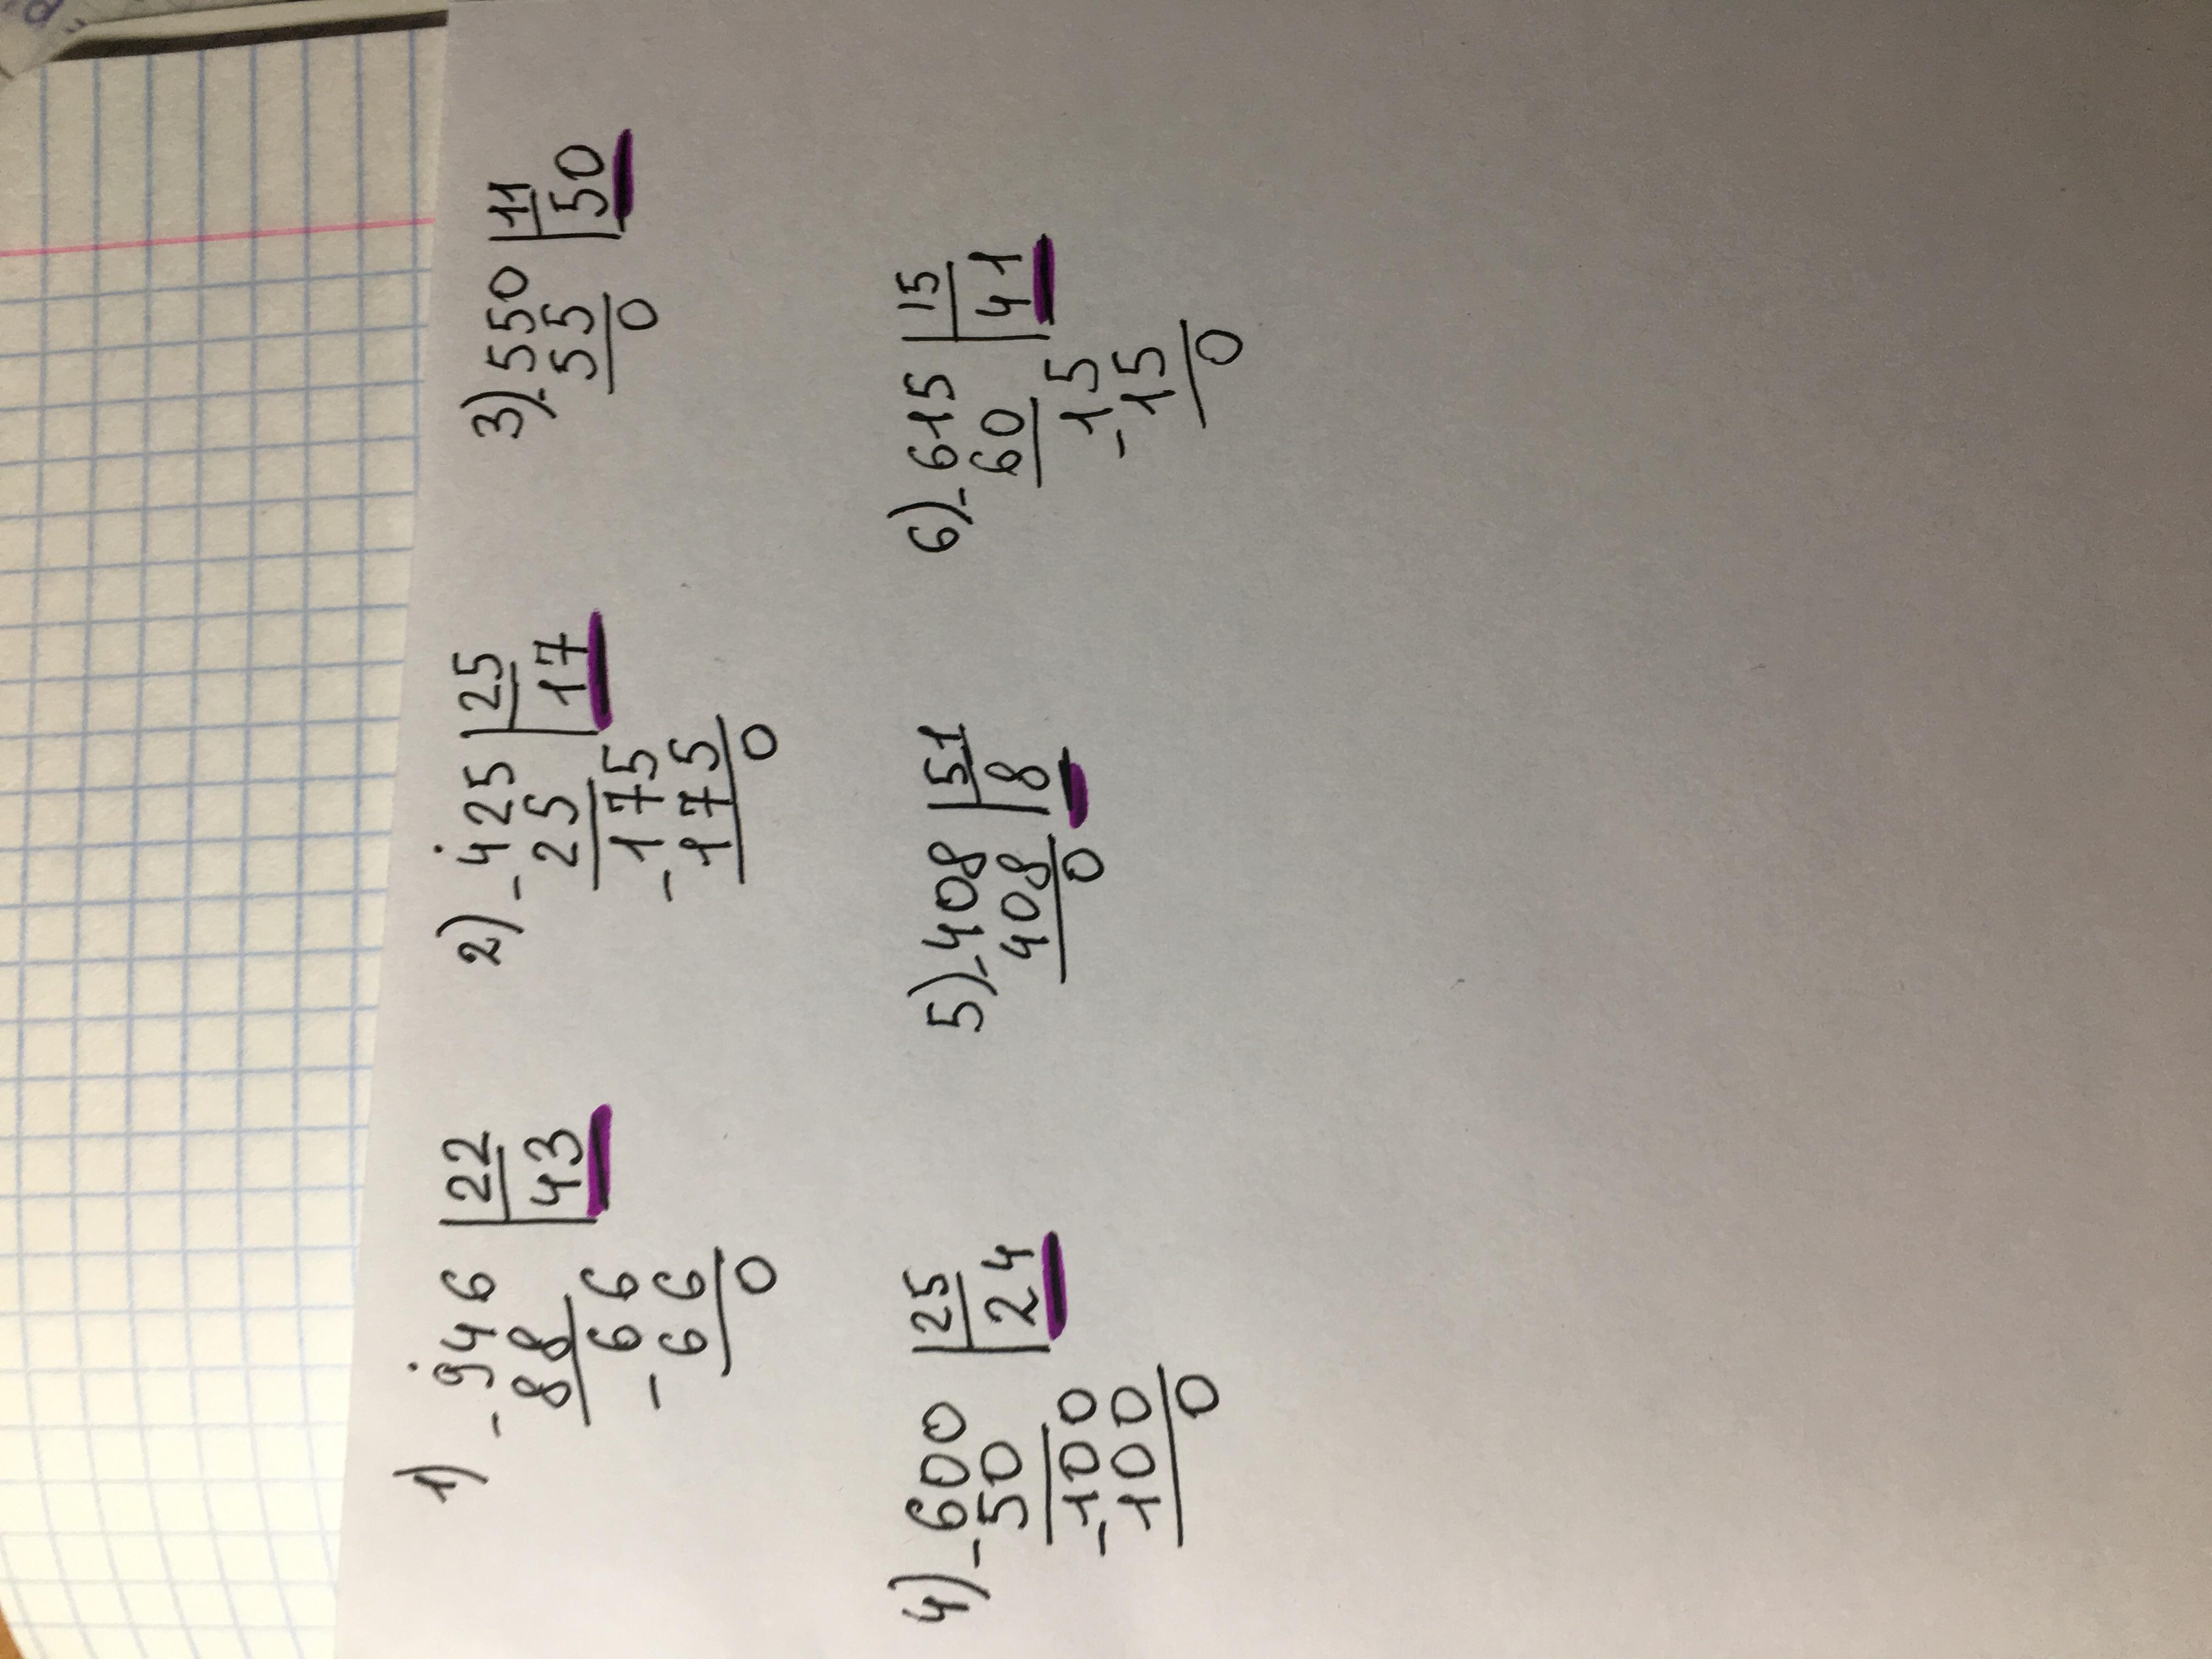 1) - 946 | 22
88 | 43
- 66
66
0
2) - 425 | 25
25 | 17
- 175
175
0
3) - 550 | 11
55 | 50
0
4) - 600 | 25
50 | 24
- 100
100
0
5) - 408 | 51
408 | 8
0
6) - 615 | 15
60 | 41
- 15
15
0